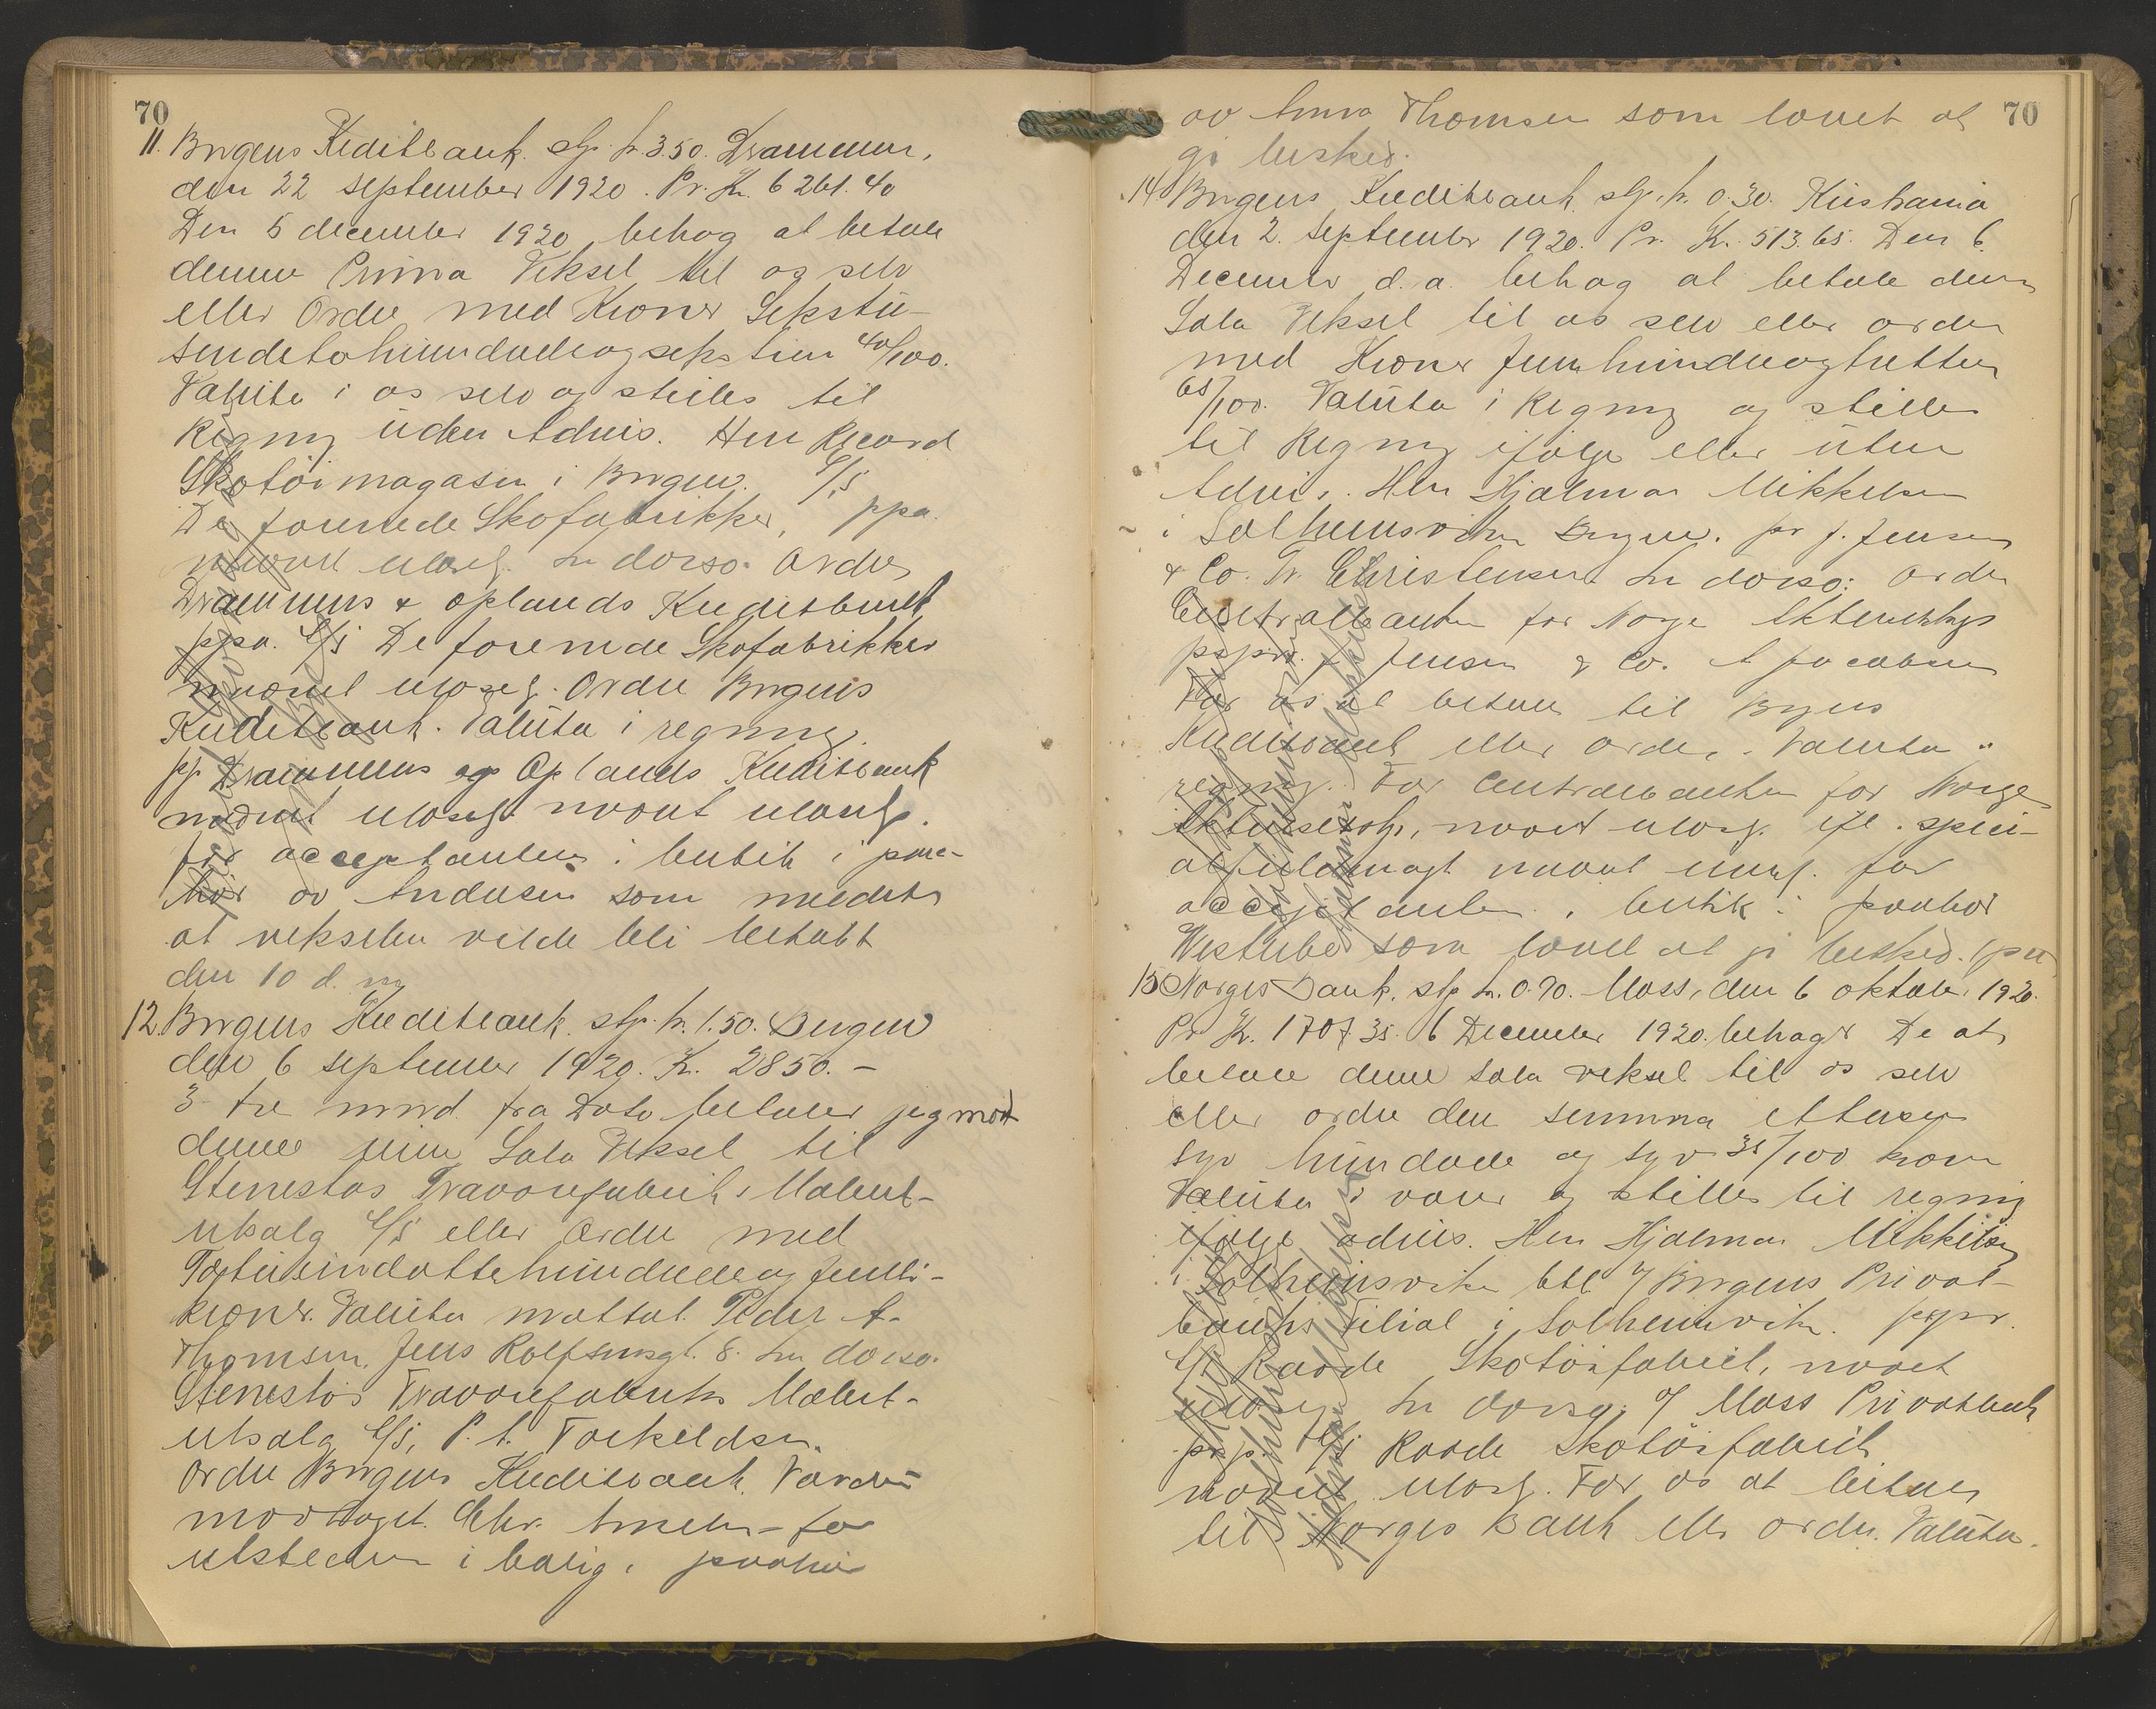 70
11. Bergens Kreditbank. stp. kr. 3.50. Drammen,
den 22 september 1920. Pr. Kr. 6261.40
Den 5 december 1920 behag at betale
denne Prima Veksel til os selv
eller Ordre med Kroner Sekstu-
sendetohundredeogseksti en 40/100.
Valuta i os selv og stilles til
Regning uden Advis. Herr Record
Skotöimagasin i Bergen. A/S
De forenede Skofabrikker, ppa.
navnet ulæsel. In dorso. Ordre
Drammens & Oplands Kreditbank
ppa. A/S De forenede Skofabrikker
navnet ulæsel. Ordre Bergens
Kreditbank. Valuta i regning.
pp. Drammens og Oplands Kreditbank
navnet ulæsel. navnet ulæsel.
for acceptanten i butik i paa-
hör av Andersen som meldte
at vekselen vilde bli betalt
den 10 d. m.
12. Bergens Kreditbank. stp. kr. 1.50. Bergen
den 6 september 1920. Kr. 2850.-
3 tre mnd. fra Dato betaler jeg mot
denne min Sola Veksel til
Stenestøs Travarefabrik & Malerut-
utsalg A/S eller Ordre med
Totusindottehundredeogfemti-
kroner. Valuta mottat. Peder A.
Thomsen. Jens Rolfsensgt. 8. In dorso.
Stenestøs Travarefabriks Malerut-
utsalg A/S, P. A. Torkildsen.
Ordre Bergens Kreditbank. Værdi
mottaget. Chr. for
utstederen i bolig i paahør
70
av Anna Thomsen som lovet at
gi besked.
14 Bergens Kreditbank. stp. kr. 0.30. Kristiania
den 2. september 1920. Pr. Kr. 513.65. Den 6.
December d. a. behag at betale denne
Sola Veksel til os selv eller ordre
med Kroner Femhundredeogtretten
65/100. Valuta i Regning og stilles
til Regning ifølge eller uten
Advis. Herr Hjalmar Mikkelsen
i Solheimsviken Bergen. pr J. Jensen
& Co. Tr. Christensen. In dorso: Ordre
Centralbanken for Norge Aktieselskap
pspr. J. Jensen & Co. A Jacobsen
For os at betale til Bergens
Kreditbank eller ordre. Valuta i
regning. For Centralbanken for Norge
Aktieselskap, navnet ulæsel. ifl. speci-
alfuldmagt navnet ulæsel. for
acceptanten i butik i paahør
som lovet at gi besked.
15 Norges Bank. stp. kr. 0.90. Moss, den 6 oktober 1920.
Pr Kr. 1707.35. 6 December 1920 behager De at
betale denne Sola veksel til os selv
eller ordre den summa ettusen
syv hundrede og syv 35/100 kroner
Valuta i varer og stilles til regning
ifølge advis. Herr Hjalmar Mikkelsen
i Solheimsviken betl. A/S Bergens Privat-
banks Filial i Solheimsviken. ppr.
A/S Raade Skotöifabrik, navnet
ulæsel. In dorso; A/S Moss Privatbank
ppr. A/S Raade Skotöifabrik
navnet ulæsel. For os at betales
til Norges Bank eller ordre. Valuta